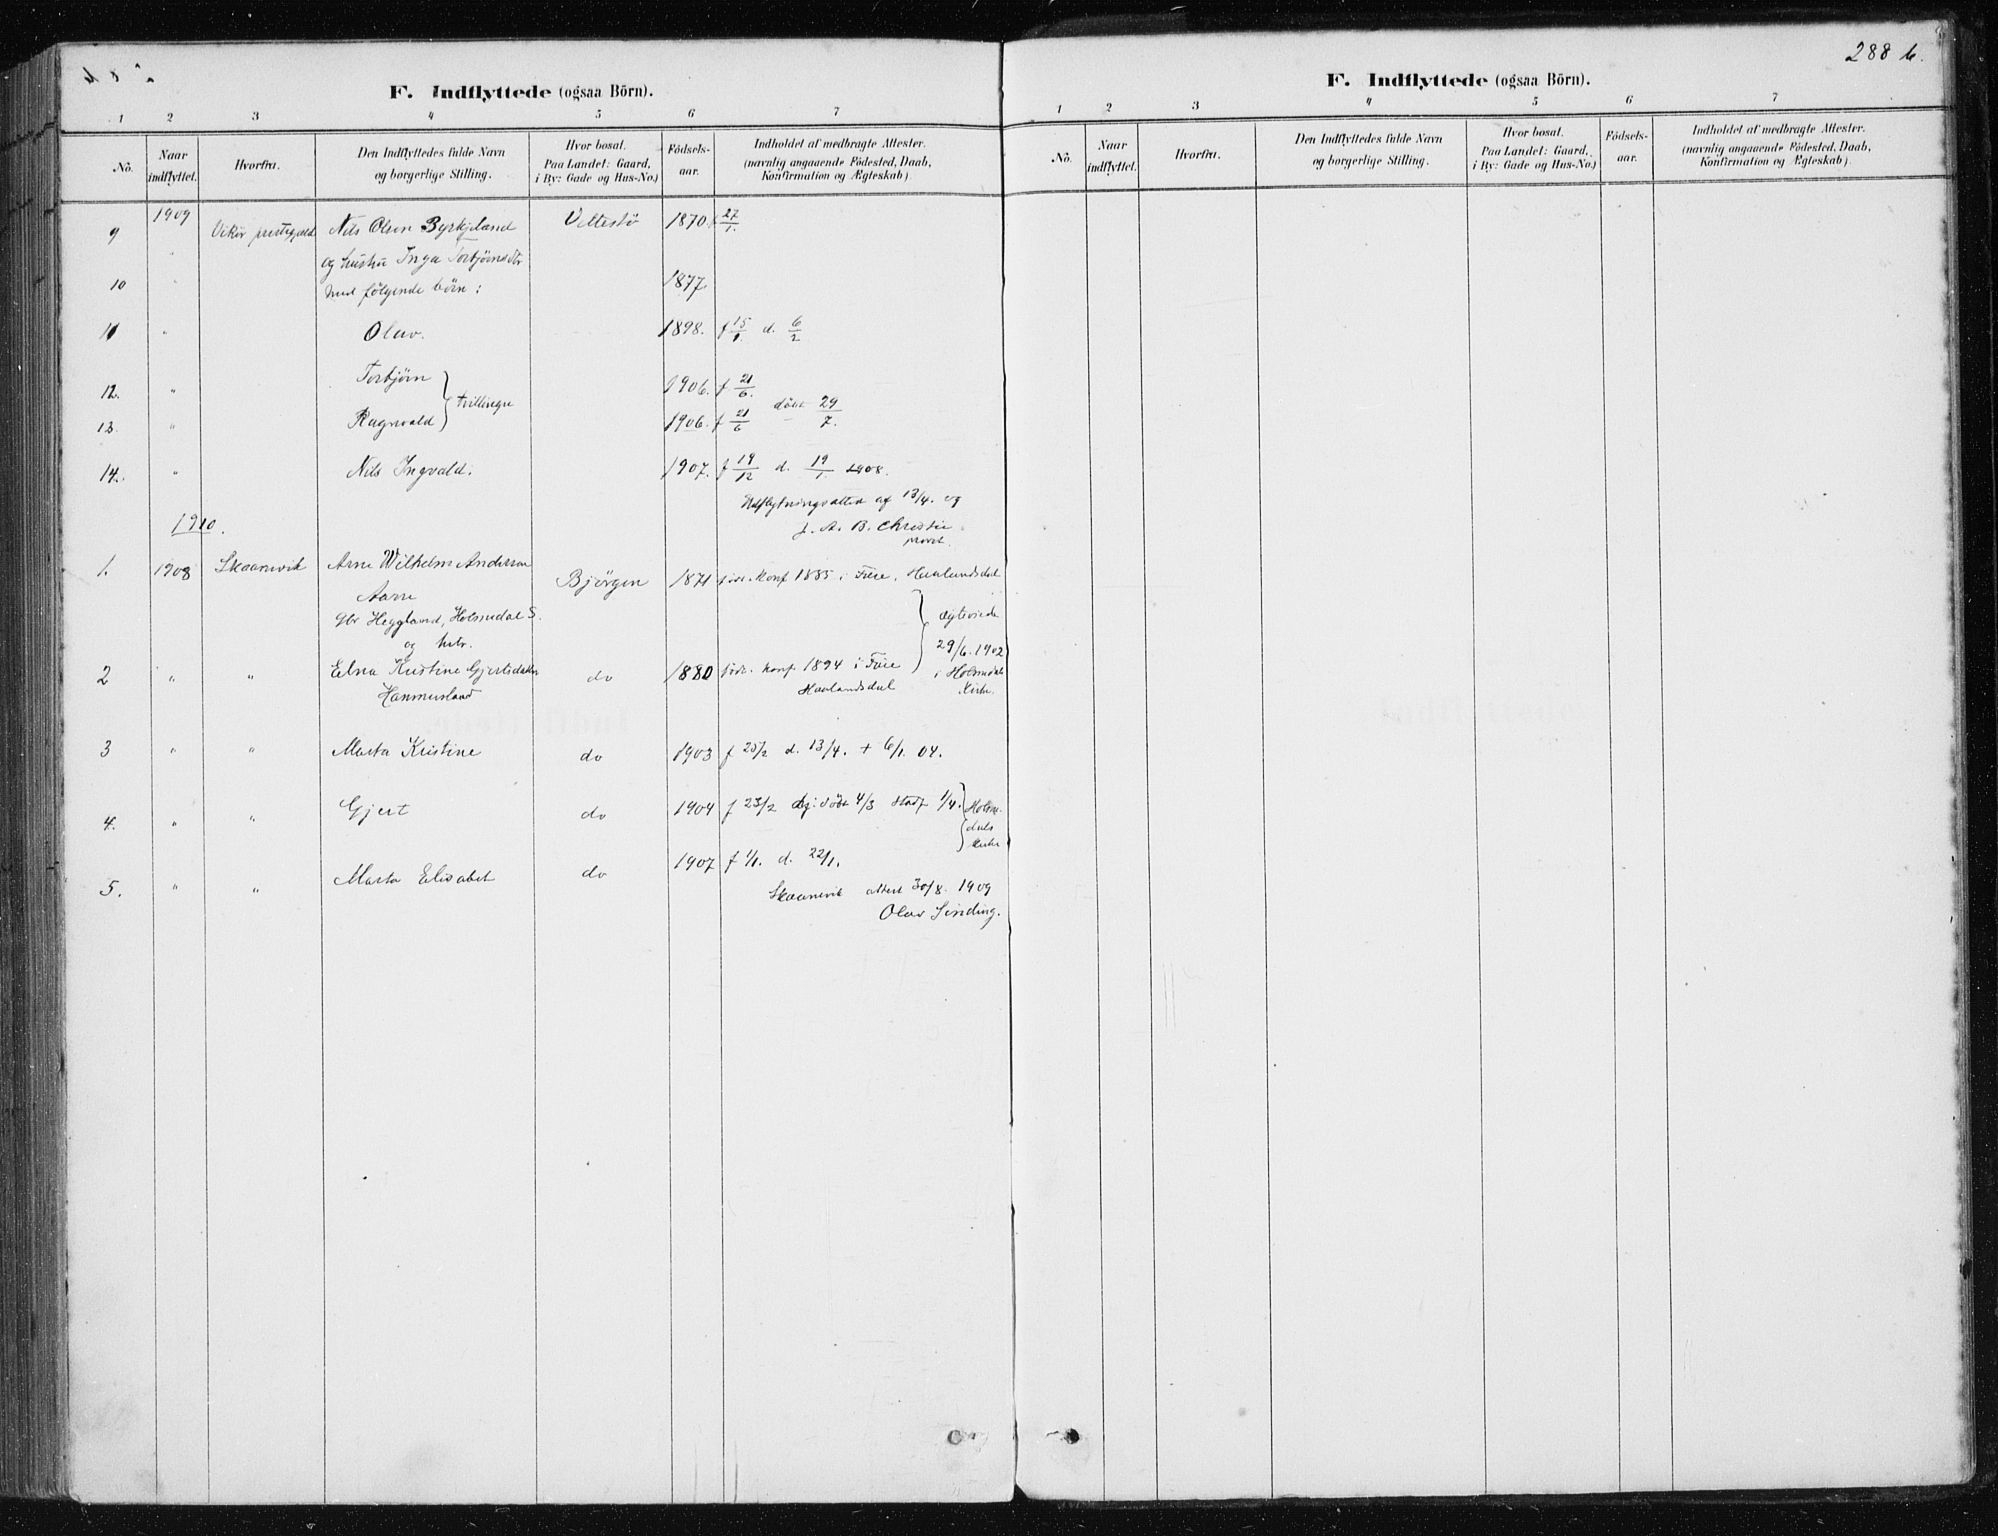 288 b.
F. Indflyttede (ogsaa Börn).
1 2 3 4 5 6 7
No. Naar indflyttet. Hvorfra. Den Indflyttedes fulde Navn og borgerlige Stilling. Hvor bosat. Paa Landet: Gaard, i By: Gade og Hus-No.) Födsels-aar. Indholdet af medbragte Attester. (navnlig angaaende Födested, Daab, Konfirmation og Ægteskab).
1909
9 Vikör prestegjeld Nils Olsen Byrkjeland 1870 f 27/1.
og hustru Inga Torbjörnsdtr
10 " med følgende børn: 1877.
11 " Olav. 1898. f 15/1. d. 6/2
12. " Torbjörn } tvillinger 1906. f 21/6. døbt 29/7.
13. " Ragnvald 1906. f 21/6 –
14. " Nils Ingvald. 1907. f 19/12 d. 19/1 1908.
Udflytningsattest af 13/4. 09
J. A. B. Christie
provst.
1910.
1. 1908 Skaanevik Arne Wilhelm Anderson Bjørgen 1871 født. Konf 1885 i Fjære, Haalandsdal
br Heggland, Holmedal S.
og hstr.
} Ægteviede
29/6. 1902
i Holmedals
Kirke.
2 " " Elna Kristine Gjertsdatter do 1880 født. Konf 1894 i Fjære
Hammersland Haalandsdal
3 " " Marta Kristine do 1903 f 25/2 d. 13/4. + 6/1. 04.
4. " " Gjert do 1904 f 23/2 hj. döbt 4/3 stadf 1/4. } Holme-
dals
Kirke
5. " " Marta Elisabet do 1907 f 1/1. d. 22/1.
Skaanevik attest 30/8. 1909
Olav Sinding.
F. Indflyttede (ogsaa Börn).
1 2 3 4 5 6 7
No. Naar indflyttet. Hvorfra. Den Indflyttedes fulde Navn og borgerlige Stilling. Hvor bosat. Paa Landet: Gaard, i By: Gade og Hus-No.) Födsels-aar. Indholdet af medbragte Attester. (navnlig angaaende Födested, Daab, Konfirmation og Ægteskab).